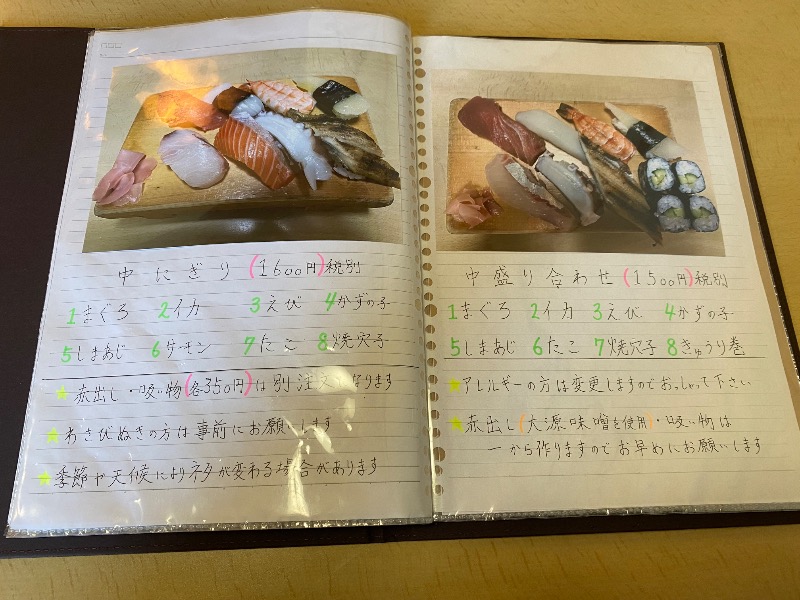 中にぎり(1600円)税別
1まぐろ 2イカ 3えび 4かずの子
5しまあじ 6サーモン 7たこ 8焼穴子
★赤出し・吸い物(各350円)は別注文となります
★わさびぬきの方は事前にお願いします
★季節や天候によりネタが変わる場合があります
中盛り合わせ(1500円)税別
1まぐろ 2イカ 3えび 4かずの子
5しまあじ 6たこ 7焼穴子 8きゅうり巻
★アレルギーの方は変更しますのでおっしゃって下さい
★赤出し(大源味噌を使用)・吸い物は
一から作りますのでお早めにお願いします